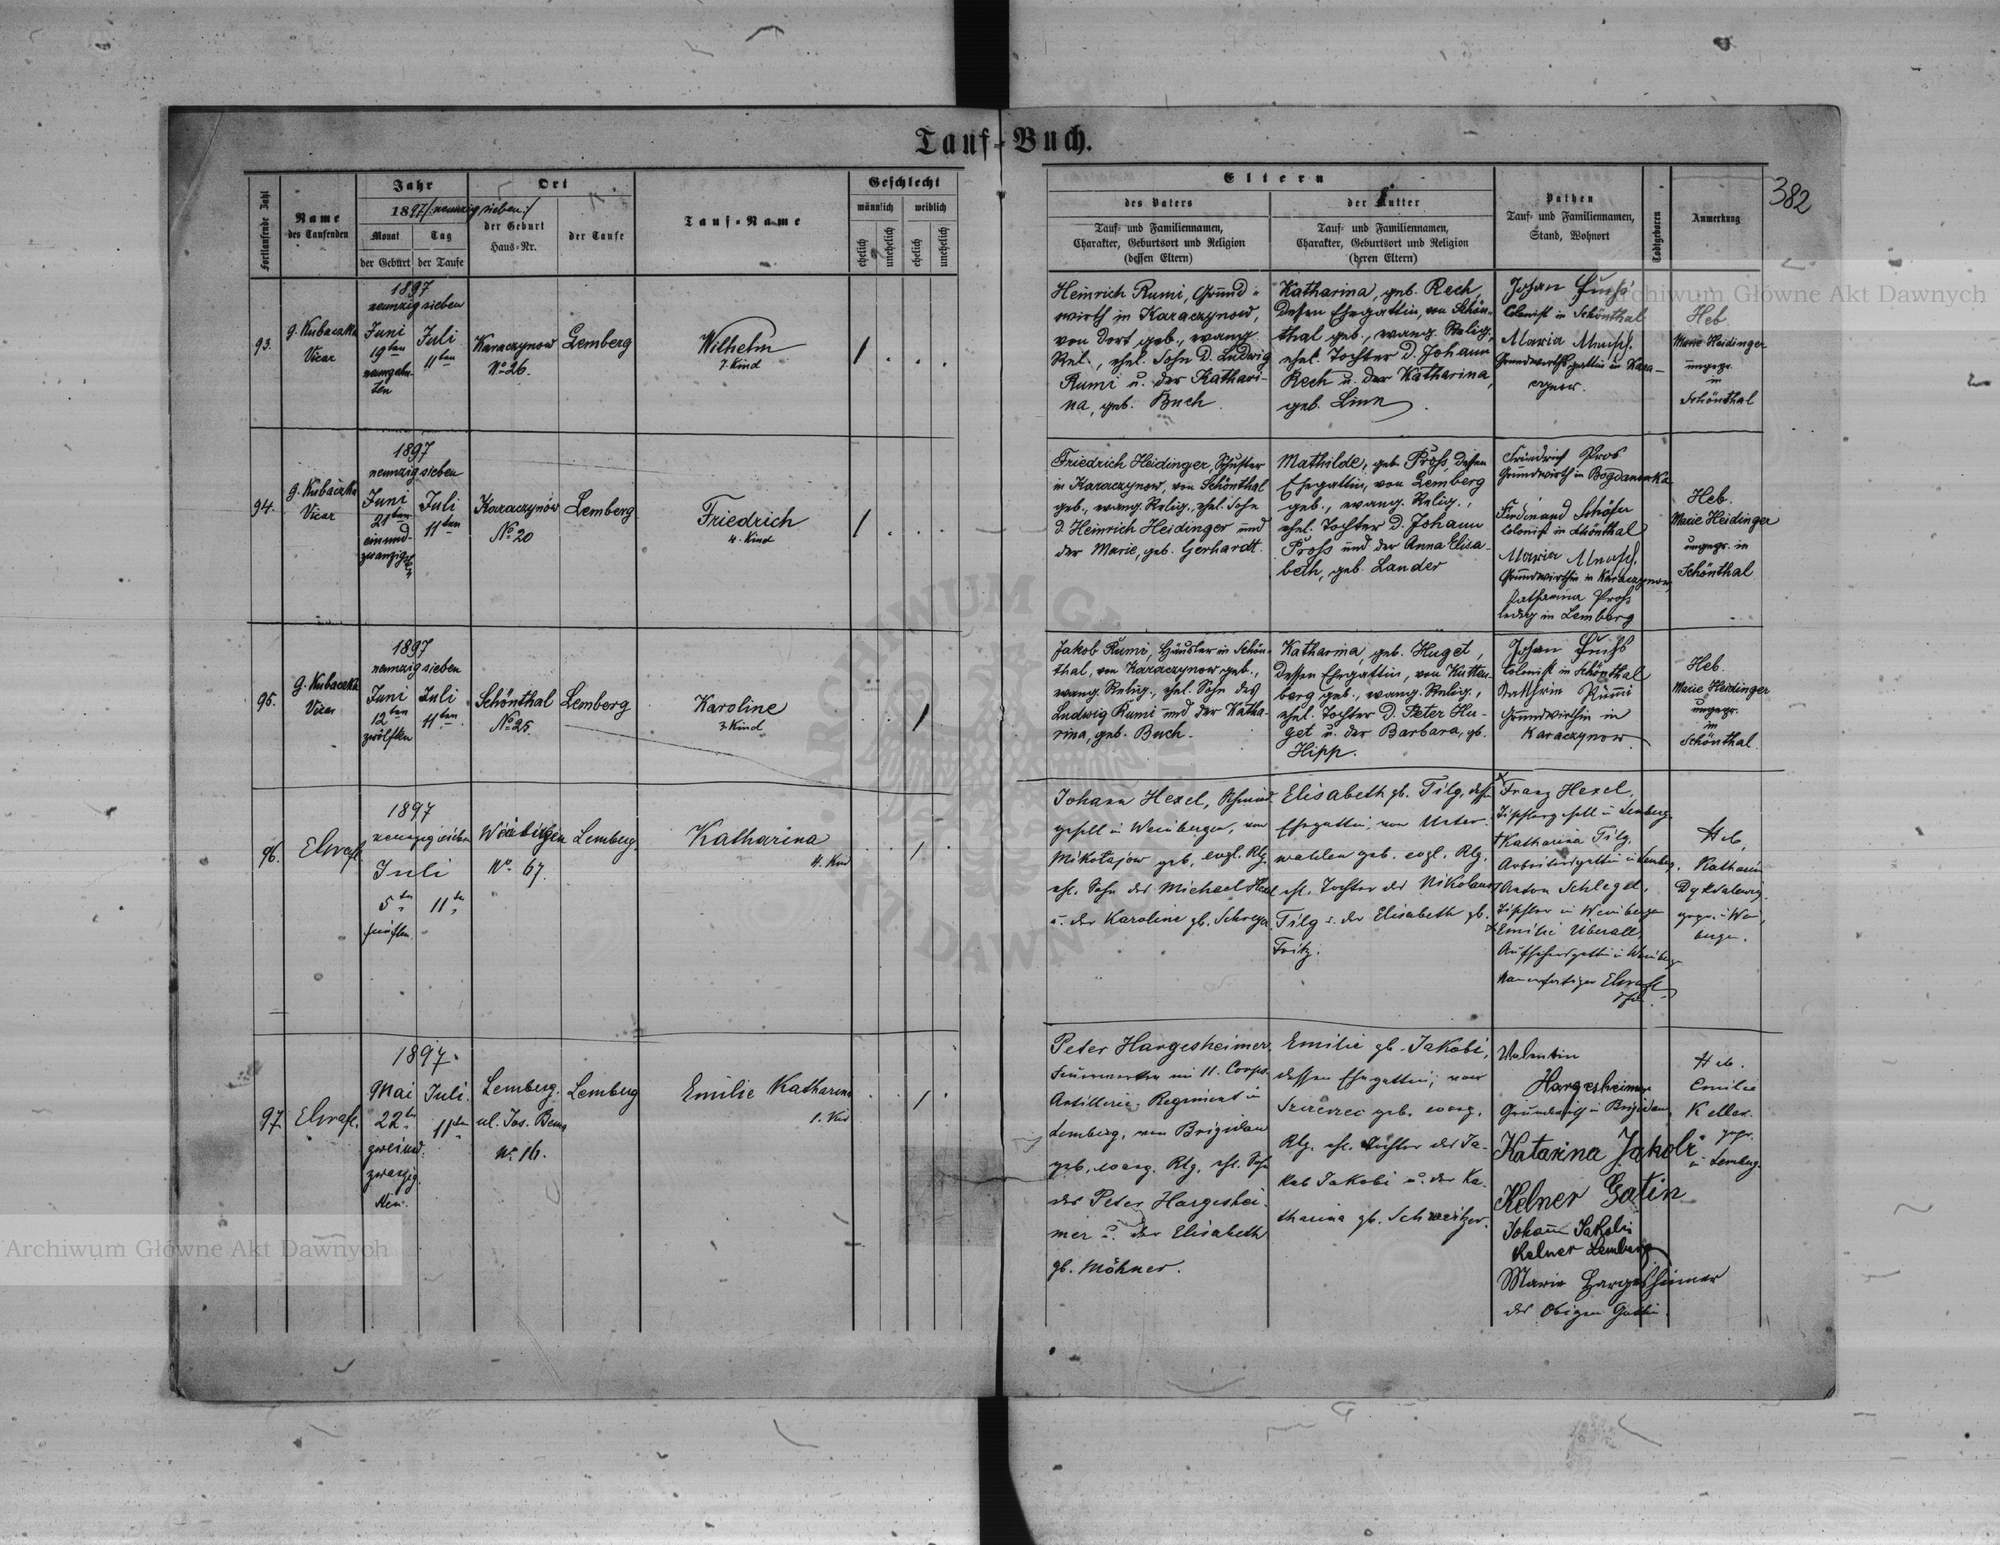 Tauf-Buch.
382
Fortlaufende Zahl
Name
des Taufenden
Jahr
1897 /: neunzig sieben :/
Monat
Tag
der Geburt
der Taufe
Ort
der Geburt
Haus-Nr.
der Taufe
Tauf-Name
Geschlecht
männlich
weiblich
ehelich
unehelich
ehelich
unehelich
Eltern
des Vaters
Tauf- und Familiennamen,
Charakter, Geburtsort und Religion
(dessen Eltern)
der Mutter
Tauf- und Familiennamen,
Charakter, Geburtsort und Religion
(deren Eltern)
Pathen
Tauf- und Familiennamen,
Stand, Wohnort
Todtgeboren
Anmerkung
93.
G. Kubaczka
Vicar
1897
neunzig sieben
Juni
19ten
neunzehn-
ten
Juli
11ten
Karaczynow
No 26.
Lemberg
Wilhelm
7. Kind
Heinrich Rumi, Grund-
wirth in Karaczynow,
von dort geb., evang.
Rel., ehel. Sohn d. Ludwig
Rumi u. der Kathari-
na, geb. Buch.
Katharina, geb. Rech,
dessen Ehegattin, von Schön-
thal geb., evang. Relig.,
ehel. Tochter d. Johann
Rech u. der Katharina,
geb. Linn.
Johan Fuchs
Colonist in Schönthal
Maria
Grundwirthsgattin in Kara-
czynow.
Heb.
Marie Heidinger
ungepr.
in
Schönthal
94.
G. Kubaczka
Vicar
1897
neunzig sieben
Juni
21ten
einund-
zwanzigsten
Juli
11ten
Karaczynów
No 20
Lemberg
Friedrich
4. Kind
Friedrich Heidinger, Schuster
in Karaczynow, von Schönthal
geb., evang. Relig., ehel. Sohn
d. Heinrich Heidinger und
der Marie, geb. Gerhardt.
Mathilde, geb. Proß, dessen
Ehegattin, von Lemberg
geb., evang. Relig.,
ehel. Tochter d. Johann
Proß und der Anna Elisa-
beth, geb. Lander
Friedrich Pros
Grundwirth in Bogdanowka
Ferdinand Schäfer
Colonist in Schönthal
Maria
Grundwirthin in Karaczynow,
Katharina Proß
ledig in Lemberg
Heb.
Marie Heidinger
ungepr. in
Schönthal
95.
G. Kubaczka
Vicar
1897
neunzig sieben
Juni
12ten
zwölften
Juli
11ten
Schönthal
No 25
Lemberg
Karoline
3. Kind
Jakob Rumi, Häusler in Schön-
thal, von Karaczynow geb.,
evang. Relig., ehel. Sohn des
Ludwig Rumi und der Katha-
rina, geb. Buch.
Katharina, geb. Huget,
dessen Ehegattin, von Kutten-
berg geb., evang. Relig.,
ehel. Tochter d. Peter Hu-
get u. der Barbara, gb.
Hipp.
Johan Fuchs
Colonist in Schönthal
Kathrin Rumi
Grundwirthin in
Karaczynow
Heb.
Marie Heidinger
ungepr.
in
Schönthal
96.
1897
neunzig sieben
Juli
5ten
fünften.
11ten
Weinbergen
No. 67.
Lemberg.
Katharina
4. Kind
Johann Hexel, Schmied-
gesell in Weinbergen, von
Mikołajow geb., evgl. Rlg.
ehl. Sohn des Michael Hexel
u. der Karoline gb. Schreyer.
Elisabeth gb. Tilg, dessen
Ehegattin, von Unter-
walden geb. evgl. Rlg.
ehl. Tochter des Nikolaus
Tilg u. der Elisabeth gb.
Fritz.
Franz Hexel,
Tischlergesell in Lemberg.
Katharina Tilg,
Arbeitersgattin in Lemberg.
Anton Schlegel,
Tischler in Weinbergen
Emilie Überall,
Aufsehersgattin in Weinbergen
Namensfertiger
Heb.
Katharina
gepr. in Wein-
bergen.
97.
1897.
Mai
22ten
zweiund-
zwanzig-
sten.
Juli.
11ten
Lemberg.
ul. Jos. Bema
No. 16.
Lemberg
Emilie Katharina
1. Kind
Peter Hargesheimer,
Feuerwerker im 11. Corps-
Artillerie-Regiment in
Lemberg, von Brigidau
geb., evang. Rlg., ehl. Sohn
des Peter Hargeshei-
mer u. der Elisabeth
gb. Möhner.
Emilie gb. Jakobi,
dessen Ehegattin, von
Szczerzec geb. evang.
Rlg. ehl. Tochter des Ja-
kob Jakobi u. der Ka-
tharina gb. Schweitzer.
Valentin
Hargesheimer
Grundwirth in Brigidau,
Katarina Jakobi
Kelner Gatin
Johann Jakobi
Kelner Lemberg
Marie Hargesheimer
des Obigen Gattin.
Heb.
Emilie
Keller.
gepr.
in Lemberg.
Archiwum Główne Akt Dawnych
Archiwum Główne Akt Dawnych